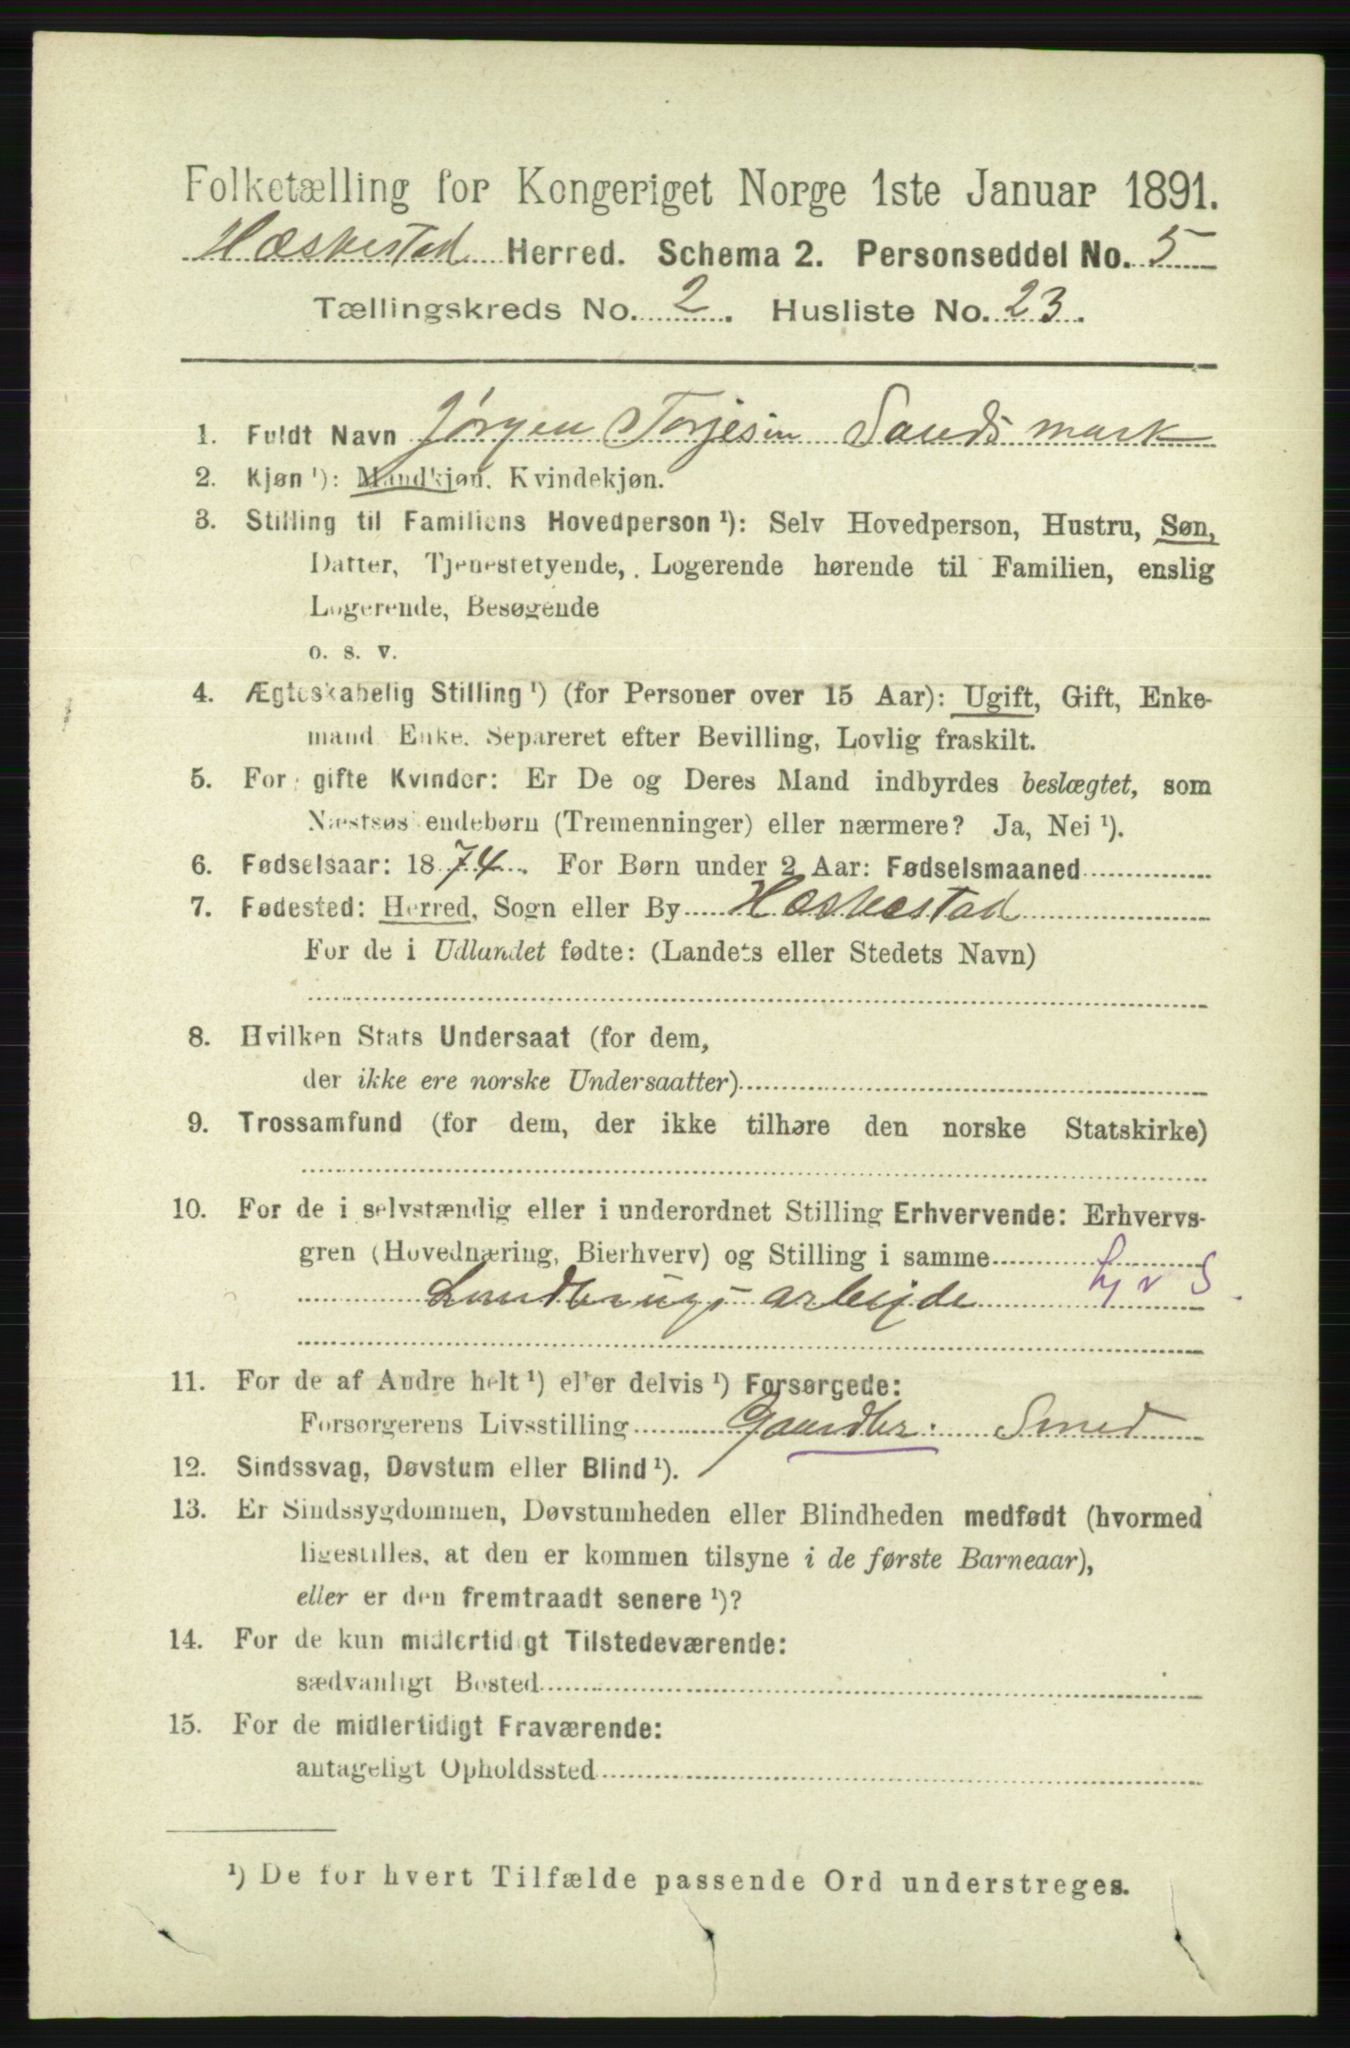 Folketælling for Kongeriget Norge 1ste Januar 1891.
Hæskestad Herred. Schema 2. Personseddel No. 5
Tællingskreds No. 2. Husliste No. 23.
1. Fuldt Navn Jørgen Torjesen Sandsmark
2. Kjøn ¹): Mandkjøn. Kvindekjøn.
3. Stilling til Familiens Hovedperson ¹): Selv Hovedperson, Hustru, Søn,
Datter, Tjenestetyende, Logerende hørende til Familien, enslig
Logerende, Besøgende
o. s. v.
4. Ægteskabelig Stilling ¹) (for Personer over 15 Aar): Ugift, Gift, Enke-
mand, Enke, Separeret efter Bevilling, Lovlig fraskilt.
5. For gifte Kvinder: Er De og Deres Mand indbyrdes beslægtet, som
Næstsøskendebørn (Tremenninger) eller nærmere? Ja, Nei ¹).
6. Fødselsaar: 1874. For Børn under 2 Aar: Fødselsmaaned
7. Fødested: Herred, Sogn eller By Hæskestad
For de i Udlandet fødte: (Landets eller Stedets Navn)
8. Hvilken Stats Undersaat (for dem,
der ikke ere norske Undersaatter)
9. Trossamfund (for dem, der ikke tilhøre den norske Statskirke)
10. For de i selvstændig eller i underordnet Stilling Erhvervende: Erhvervs-
gren (Hovednæring, Bierhverv) og Stilling i samme
Landbrugs arbejde
11. For de af Andre helt ¹) eller delvis ¹) Forsørgede:
Forsørgerens Livsstilling Gaardbr. Smed
12. Sindssvag, Døvstum eller Blind ¹).
13. Er Sindssygdommen, Døvstumheden eller Blindheden medfødt (hvormed
ligestilles, at den er kommen tilsyne i de første Barneaar),
eller er den fremtraadt senere ¹)?
14. For de kun midlertidigt Tilstedeværende:
sædvanligt Bosted
15. For de midlertidigt Fraværende:
antageligt Opholdssted
¹) De for hvert Tilfælde passende Ord understreges.